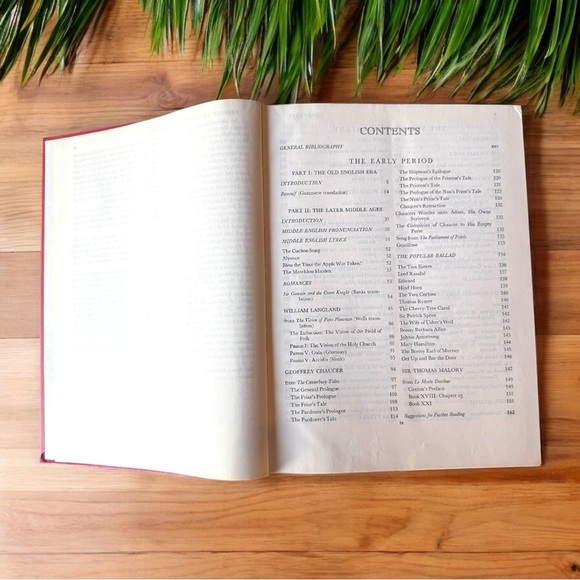 CONTENTS
GENERAL BIBLIOGRAPHY xxv
THE EARLY PERIOD
PART I: THE OLD ENGLISH ERA
INTRODUCTION 3
Beowulf (Gummere translation) 14
PART II: THE LATER MIDDLE AGES
INTRODUCTION 37
MIDDLE ENGLISH PRONUNCIATION
MIDDLE ENGLISH LYRICS 51
The Cuckoo Song 52
Alysoun 52
Bless the Time the Apple Was Taken! 52
The Matchless Maiden 53
ROMANCES
Sir Gawain and the Green Knight (Banks translation) 54
WILLIAM LANGLAND
from The Vision of Piers Plowman (Wells translation)
The Induction: The Vision of the Field of
Folk
Passus I: The Vision of the Holy Church
Passus V: Gula (Gluttony)
Passus V: Accidia (Sloth)
GEOFFREY CHAUCER 94
from The Canterbury Tales 97
The General Prologue 97
The Friar's Prologue
The Friar's Tale
The Pardoner's Prologue
The Pardoner's Tale 114
The Shipman's Epilogue 120
The Prologue of the Prioress's Tale 120
The Prioress's Tale 121
The Prologue of the Nun's Priest's Tale 123
The Nun's Priest's Tale
Chaucer's Retraction
Chaucers Wordes unto Adam, His Owne
Scriveyn
The Compleint of Chaucer to His Empty
Purse
Song from The Parliament of Fowls
Gentilesse 133
THE POPULAR BALLAD 134
The Two Sisters
Lord Randal
Edward
Hind Horn
The Two Corbies
Thomas Rymer
The Cherry-Tree Carol
Sir Patrick Spens
The Wife of Usher's Well
Bonny Barbara Allan
Johnie Armstrong
Mary Hamilton
The Bonny Earl of Murray
Get Up and Bar the Door
SIR THOMAS MALORY 147
from Le Morte Darthur
Caxton's Preface
Book XVIII: Chapter 25 151
Book XXI 151
Suggestions for Further Reading 162
ix